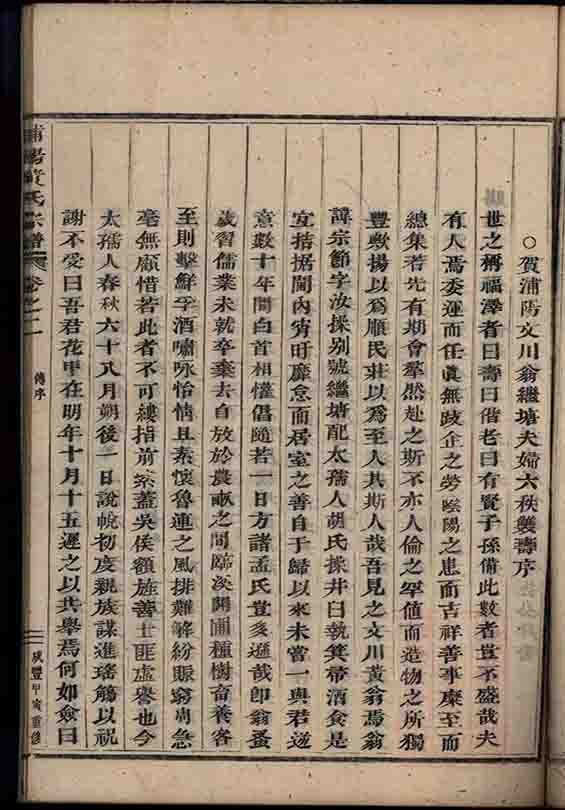 ○賀浦陽文川翁繼塘夫婦六秩雙壽序
世之稱福澤者曰壽曰偕老曰有賢子孫備此數者豈不盛哉夫
有人焉委運而任眞無歧企之勞陰陽之患而吉祥善事麋至而
總集若先有期會羣然赴之斯不亦人倫之罕値而造物之所獨
豐歟揚以爲順民莊以爲至人其斯人哉吾見之文川黃翁焉翁
諱宗節字汝操别號繼塘配太孺人胡氏操井臼執箕帚酒食是
宜拮据閫內宵旰靡怠而居室之善自于歸以來未嘗一與君逆
意數十年間白首相懽倡隨若一日方諸孟氏豈多遜哉卽翁蚤
歲習儒業未就卒棄去自放於農畝之間蹄涔闢圃種樹畜養客
至則擊鮮孚酒嘯咏怡情且素懷魯連之風排難解紛賑窮周急
毫無顧惜若此者不可縷指前案蓋吳侯額旌善士匪虛譽也今
太孺人春秋六十八月朔後一日說帨初度親族謀進瑤觴以祝
謝不受曰吾君花甲在明年十月十五遲之以共舉焉何如僉曰
浦陽黃氏宗譜 卷之二
傳序
咸豐甲寅重修